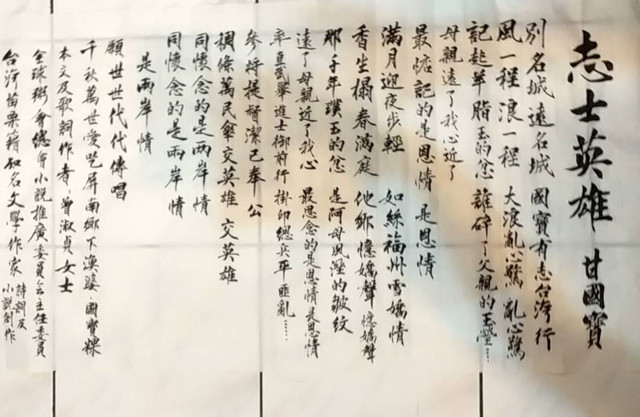 志士英雄 甘國寶
別名城遠名城 國寶有志台灣行
風一程浪一程 大浪亂心驚 亂心驚
記起羊脂玉的忿 誰碎了父親的玉瑩……
母親遠了我心近了
最惦記的是恩情 是恩情
滿月迎夜步輕 如絲福州雪嬌情
香生榻春滿庭 他鄉憶嬌聲 憶嬌聲
那千年璞玉的忿 是阿母風溼的皺紋
遠了母親近了我心 最思念的是恩情是恩情
平直武舉進士御前行 掛印總兵平匪亂……
參將提督潔己奉公
條萬民 交英雄 交英雄
同懷念的是兩岸情
同懷念的是兩岸情
是兩岸情
願世世代代傳唱
千秋萬世愛 屏南鄉下漁婆 國寶粿
本文及歌詞作者曾淑貞女士
全球粥會總會小說推廣委員會主任委員
台灣苗栗籍知名文學作家 詩詞及
小說創作